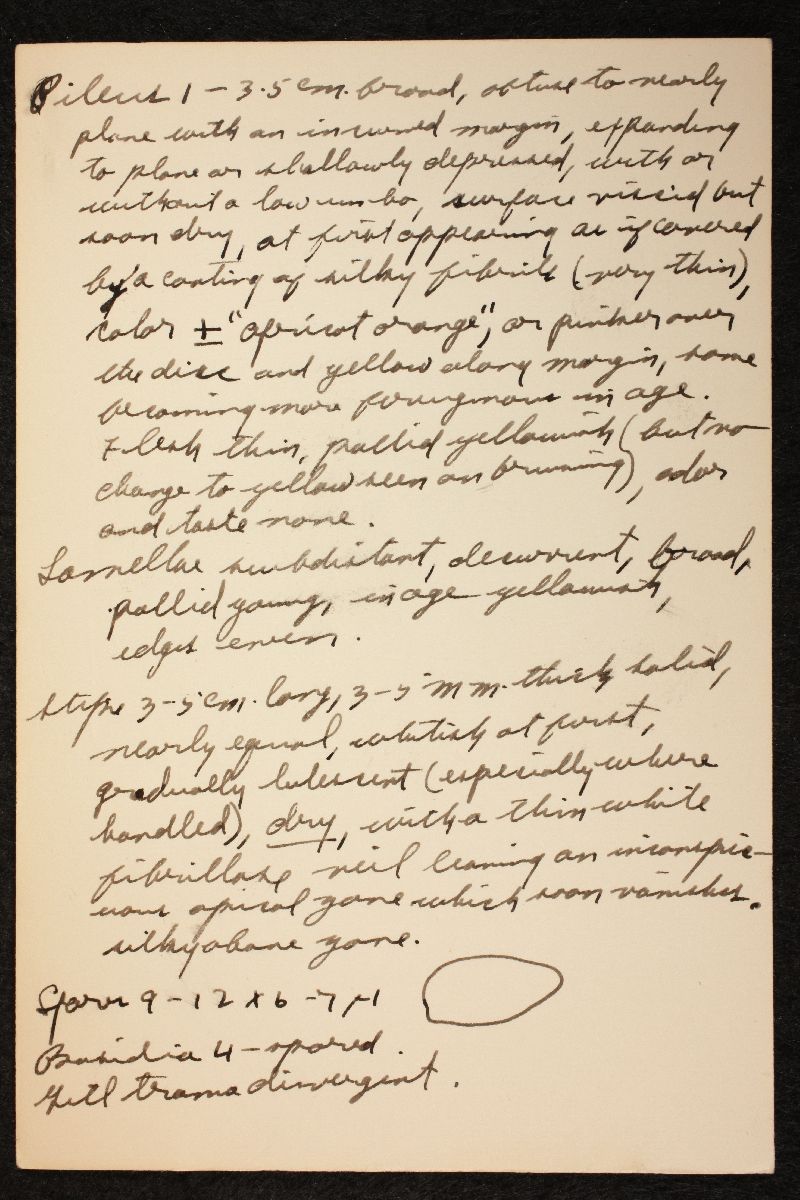 Pileus 1 – 3.5 cm. broad, obtuse to nearly
plane with an incurved margin, expanding
to plane or shallowly depressed, with or
without a low umbo, surface viscid but
soon dry, at first appearing as if covered
by a coating of silky fibrils (very thin),
color ± "apricot orange", or pinker over
the disc and yellow along margin, some
becoming more ferruginous in age.
Flesh thin, pallid yellowish (but no
change to yellow seen on bruising), odor
and taste none.
Lamellae subdistant, decurrent, broad,
pallid young, in age yellowish,
edges even.
Stipe 3–5 cm. long, 3–5 mm. thick solid,
nearly equal, whitish at first,
gradually lutescent (especially where
handled), dry, with a thin white
fibrillose veil leaving an inconspic-
uous apical zone which soon vanishes.
silky above zone.
Spores 9 – 12 x 6 – 7 µ
Basidia 4 – spored.
Gill trama divergent.